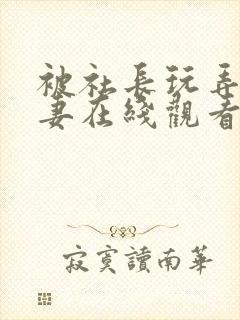 被社長玩弄
妻在綫觀看
寂寞讀南華